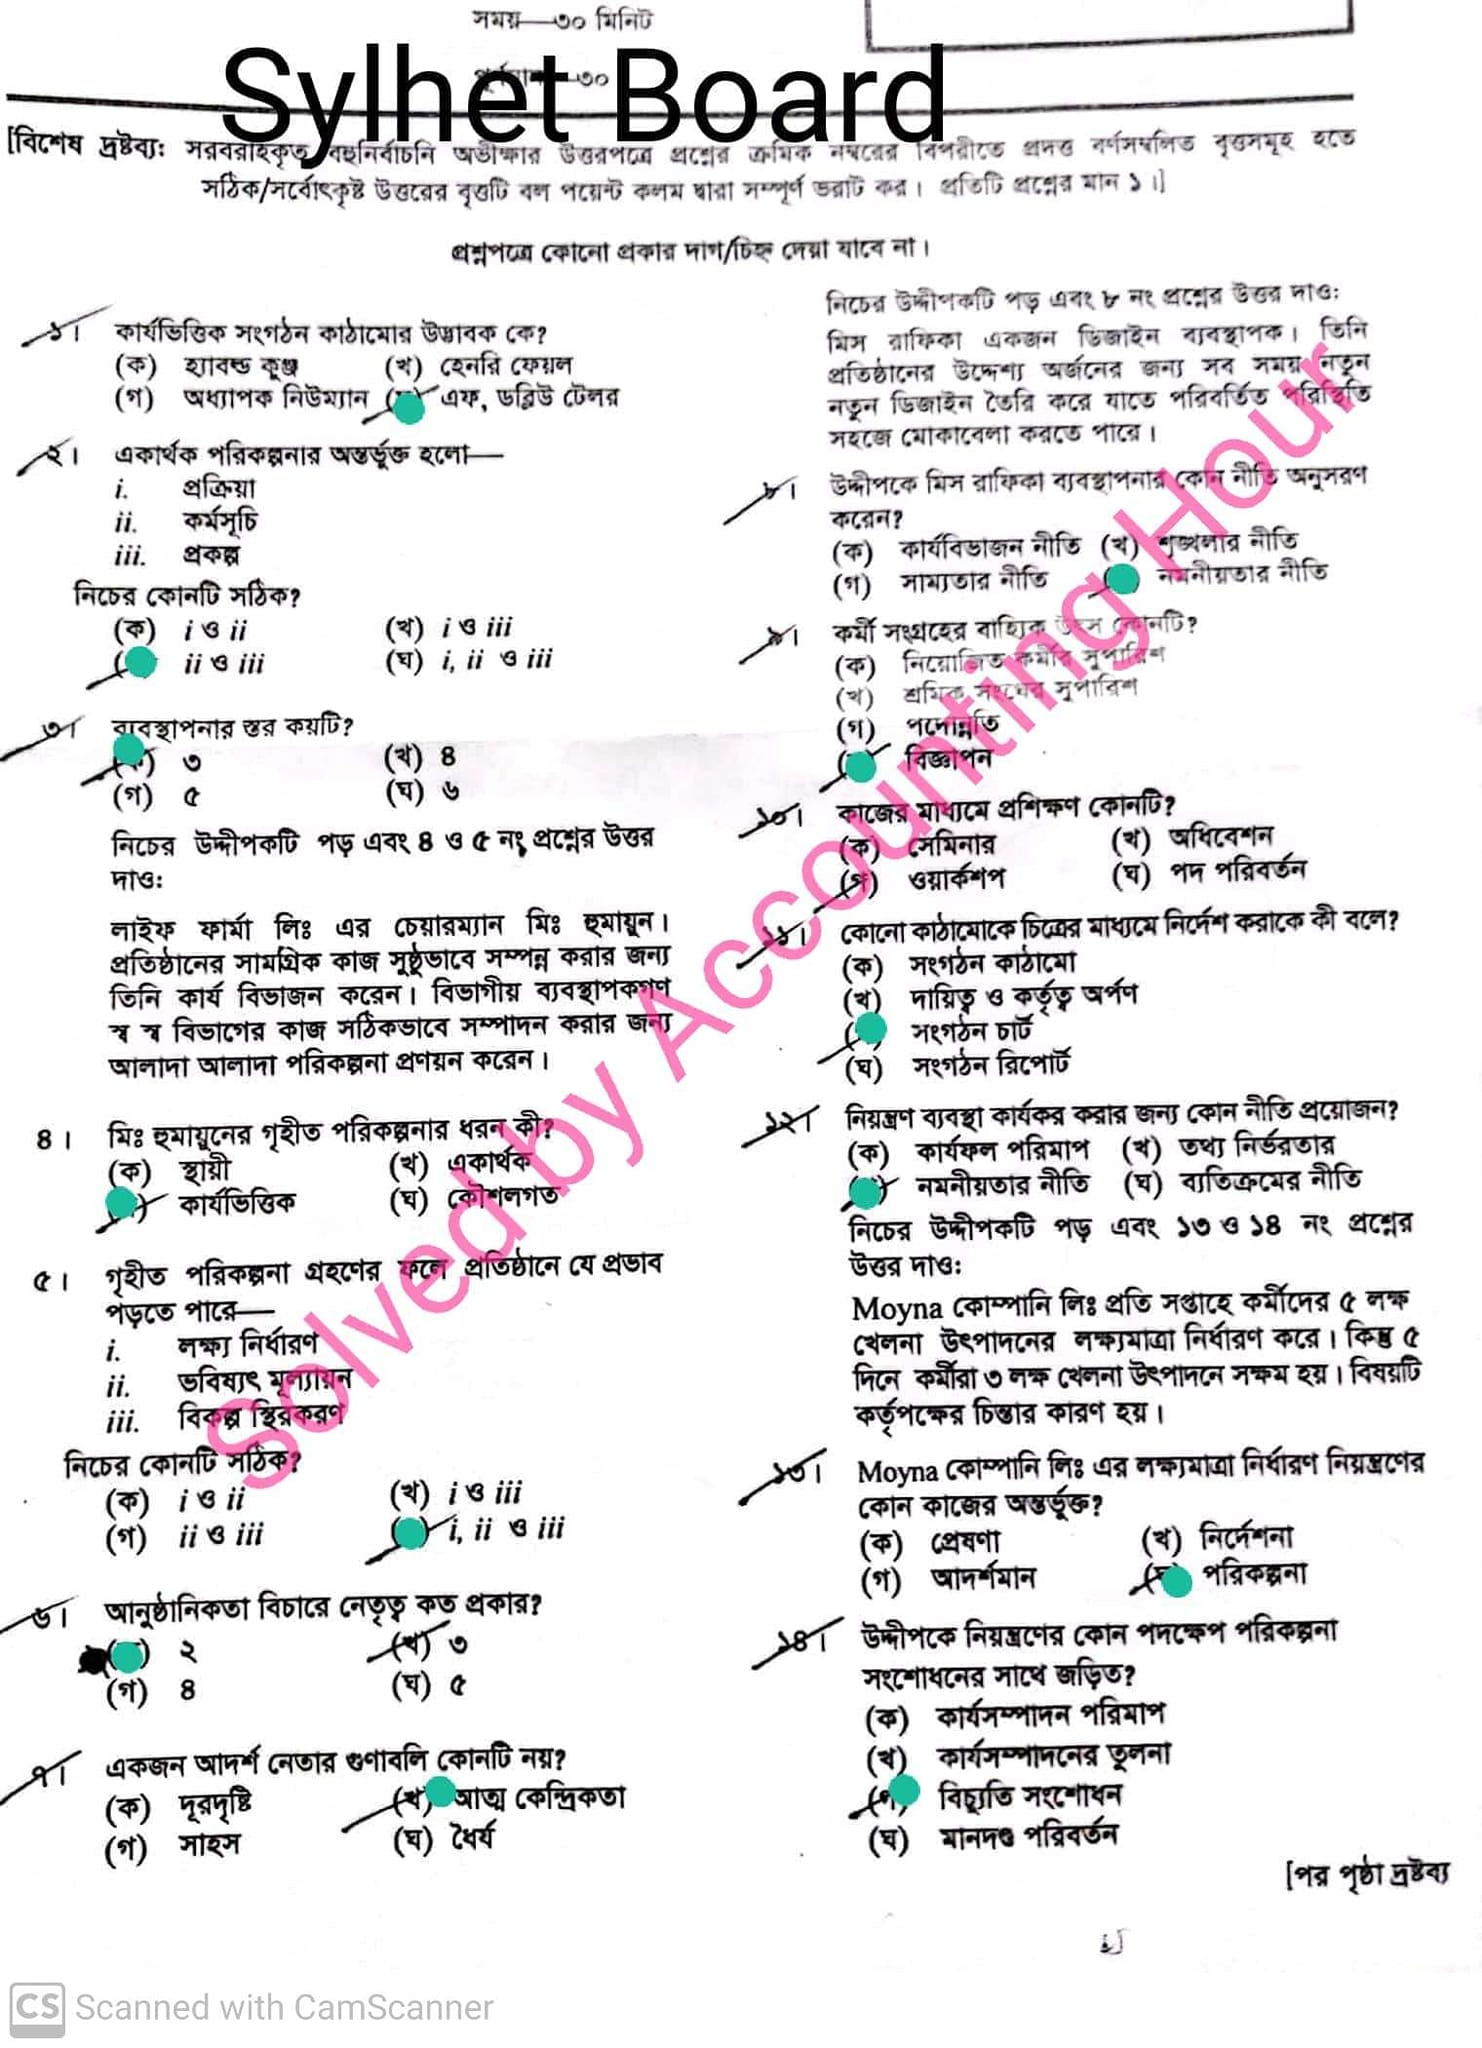 সময়—৩০ মিনিট
Sylhet Board
—৩০
[বিশেষ দ্রষ্টব্যঃ সরবরাহকৃত বহুনির্বাচনি অভীক্ষার উত্তরপত্রে প্রশ্নের ক্রমিক নম্বরের বিপরীতে প্রদত্ত বর্ণসম্বলিত বৃত্তসমূহ হতে
সঠিক/সর্বোৎকৃষ্ট উত্তরের বৃত্তটি বল পয়েন্ট কলম দ্বারা সম্পূর্ণ ভরাট কর। প্রতিটি প্রশ্নের মান ১।]
প্রশ্নপত্রে কোনো প্রকার দাগ/চিহ্ন দেয়া যাবে না।
১। কার্যভিত্তিক সংগঠন কাঠামোর উদ্ভাবক কে?
(ক) হ্যাবল্ড কুঞ্জ (খ) হেনরি ফেয়ল
(গ) অধ্যাপক নিউম্যান এফ, ডব্লিউ টেলর
২। একার্থক পরিকল্পনার অন্তর্ভুক্ত হলো—
i. প্রক্রিয়া
ii. কর্মসূচি
iii. প্রকল্প
নিচের কোনটি সঠিক?
(ক) i ও ii (খ) i ও iii
ii ও iii (ঘ) i, ii ও iii
৩। ব্যবস্থাপনার স্তর কয়টি?
৩ (খ) ৪
(গ) ৫ (ঘ) ৬
নিচের উদ্দীপকটি পড় এবং ৪ ও ৫ নং প্রশ্নের উত্তর
দাও:
লাইফ ফার্মা লিঃ এর চেয়ারম্যান মিঃ হুমায়ুন।
প্রতিষ্ঠানের সামগ্রিক কাজ সুষ্ঠুভাবে সম্পন্ন করার জন্য
তিনি কার্য বিভাজন করেন। বিভাগীয় ব্যবস্থাপকগণ
স্ব স্ব বিভাগের কাজ সঠিকভাবে সম্পাদন করার জন্য
আলাদা আলাদা পরিকল্পনা প্রণয়ন করেন।
৪। মিঃ হুমায়ুনের গৃহীত পরিকল্পনার ধরন কী?
(ক) স্থায়ী (খ) একার্থক
কার্যভিত্তিক (ঘ) কৌশলগত
৫। গৃহীত পরিকল্পনা গ্রহণের ফলে প্রতিষ্ঠানে যে প্রভাব
পড়তে পারে—
i. লক্ষ্য নির্ধারণ
ii. ভবিষ্যৎ মূল্যায়ন
iii. বিকল্প স্থিরকরণ
নিচের কোনটি সঠিক?
(ক) i ও ii (খ) i ও iii
(গ) ii ও iii i, ii ও iii
৬। আনুষ্ঠানিকতা বিচারে নেতৃত্ব কত প্রকার?
২ (খ) ৩
(গ) ৪ (ঘ) ৫
৭। একজন আদর্শ নেতার গুণাবলি কোনটি নয়?
(ক) দূরদৃষ্টি (খ) আত্ম কেন্দ্রিকতা
(গ) সাহস (ঘ) ধৈর্য
নিচের উদ্দীপকটি পড় এবং ৮ নং প্রশ্নের উত্তর দাও:
মিস রাফিকা একজন ডিজাইন ব্যবস্থাপক। তিনি
প্রতিষ্ঠানের উদ্দেশ্য অর্জনের জন্য সব সময় নতুন
নতুন ডিজাইন তৈরি করে যাতে পরিবর্তিত পরিস্থিতি
সহজে মোকাবেলা করতে পারে।
৮। উদ্দীপকে মিস রাফিকা ব্যবস্থাপনার কোন নীতি অনুসরণ
করেন?
(ক) কার্যবিভাজন নীতি (খ) শৃঙ্খলার নীতি
(গ) সাম্যতার নীতি নমনীয়তার নীতি
৯। কর্মী সংগ্রহের বাহ্যিক উৎস কোনটি?
(ক) নিয়োজিত কর্মীর সুপারিশ
(খ) শ্রমিক সংঘের সুপারিশ
(গ) পদোন্নতি
বিজ্ঞাপন
১০। কাজের মাধ্যমে প্রশিক্ষণ কোনটি?
(ক) সেমিনার (খ) অধিবেশন
(গ) ওয়ার্কশপ (ঘ) পদ পরিবর্তন
১১। কোনো কাঠামোকে চিত্রের মাধ্যমে নির্দেশ করাকে কী বলে?
(ক) সংগঠন কাঠামো
(খ) দায়িত্ব ও কর্তৃত্ব অর্পণ
সংগঠন চার্ট
(ঘ) সংগঠন রিপোর্ট
১২। নিয়ন্ত্রণ ব্যবস্থা কার্যকর করার জন্য কোন নীতি প্রয়োজন?
(ক) কার্যফল পরিমাপ (খ) তথ্য নির্ভরতার
নমনীয়তার নীতি (ঘ) ব্যতিক্রমের নীতি
নিচের উদ্দীপকটি পড় এবং ১৩ ও ১৪ নং প্রশ্নের
উত্তর দাও:
Moyna কোম্পানি লিঃ প্রতি সপ্তাহে কর্মীদের ৫ লক্ষ
খেলনা উৎপাদনের লক্ষ্যমাত্রা নির্ধারণ করে। কিন্তু ৫
দিনে কর্মীরা ৩ লক্ষ খেলনা উৎপাদনে সক্ষম হয়। বিষয়টি
কর্তৃপক্ষের চিন্তার কারণ হয়।
১৩। Moyna কোম্পানি লিঃ এর লক্ষ্যমাত্রা নির্ধারণ নিয়ন্ত্রণের
কোন কাজের অন্তর্ভুক্ত?
(ক) প্রেষণা (খ) নির্দেশনা
(গ) আদর্শমান (ঘ) পরিকল্পনা
১৪। উদ্দীপকে নিয়ন্ত্রণের কোন পদক্ষেপ পরিকল্পনা
সংশোধনের সাথে জড়িত?
(ক) কার্যসম্পাদন পরিমাপ
(খ) কার্যসম্পাদনের তুলনা
(গ) বিচ্যুতি সংশোধন
(ঘ) মানদণ্ড পরিবর্তন
[পর পৃষ্ঠা দ্রষ্টব্য
Solved by Accounting Hour
CS Scanned with CamScanner